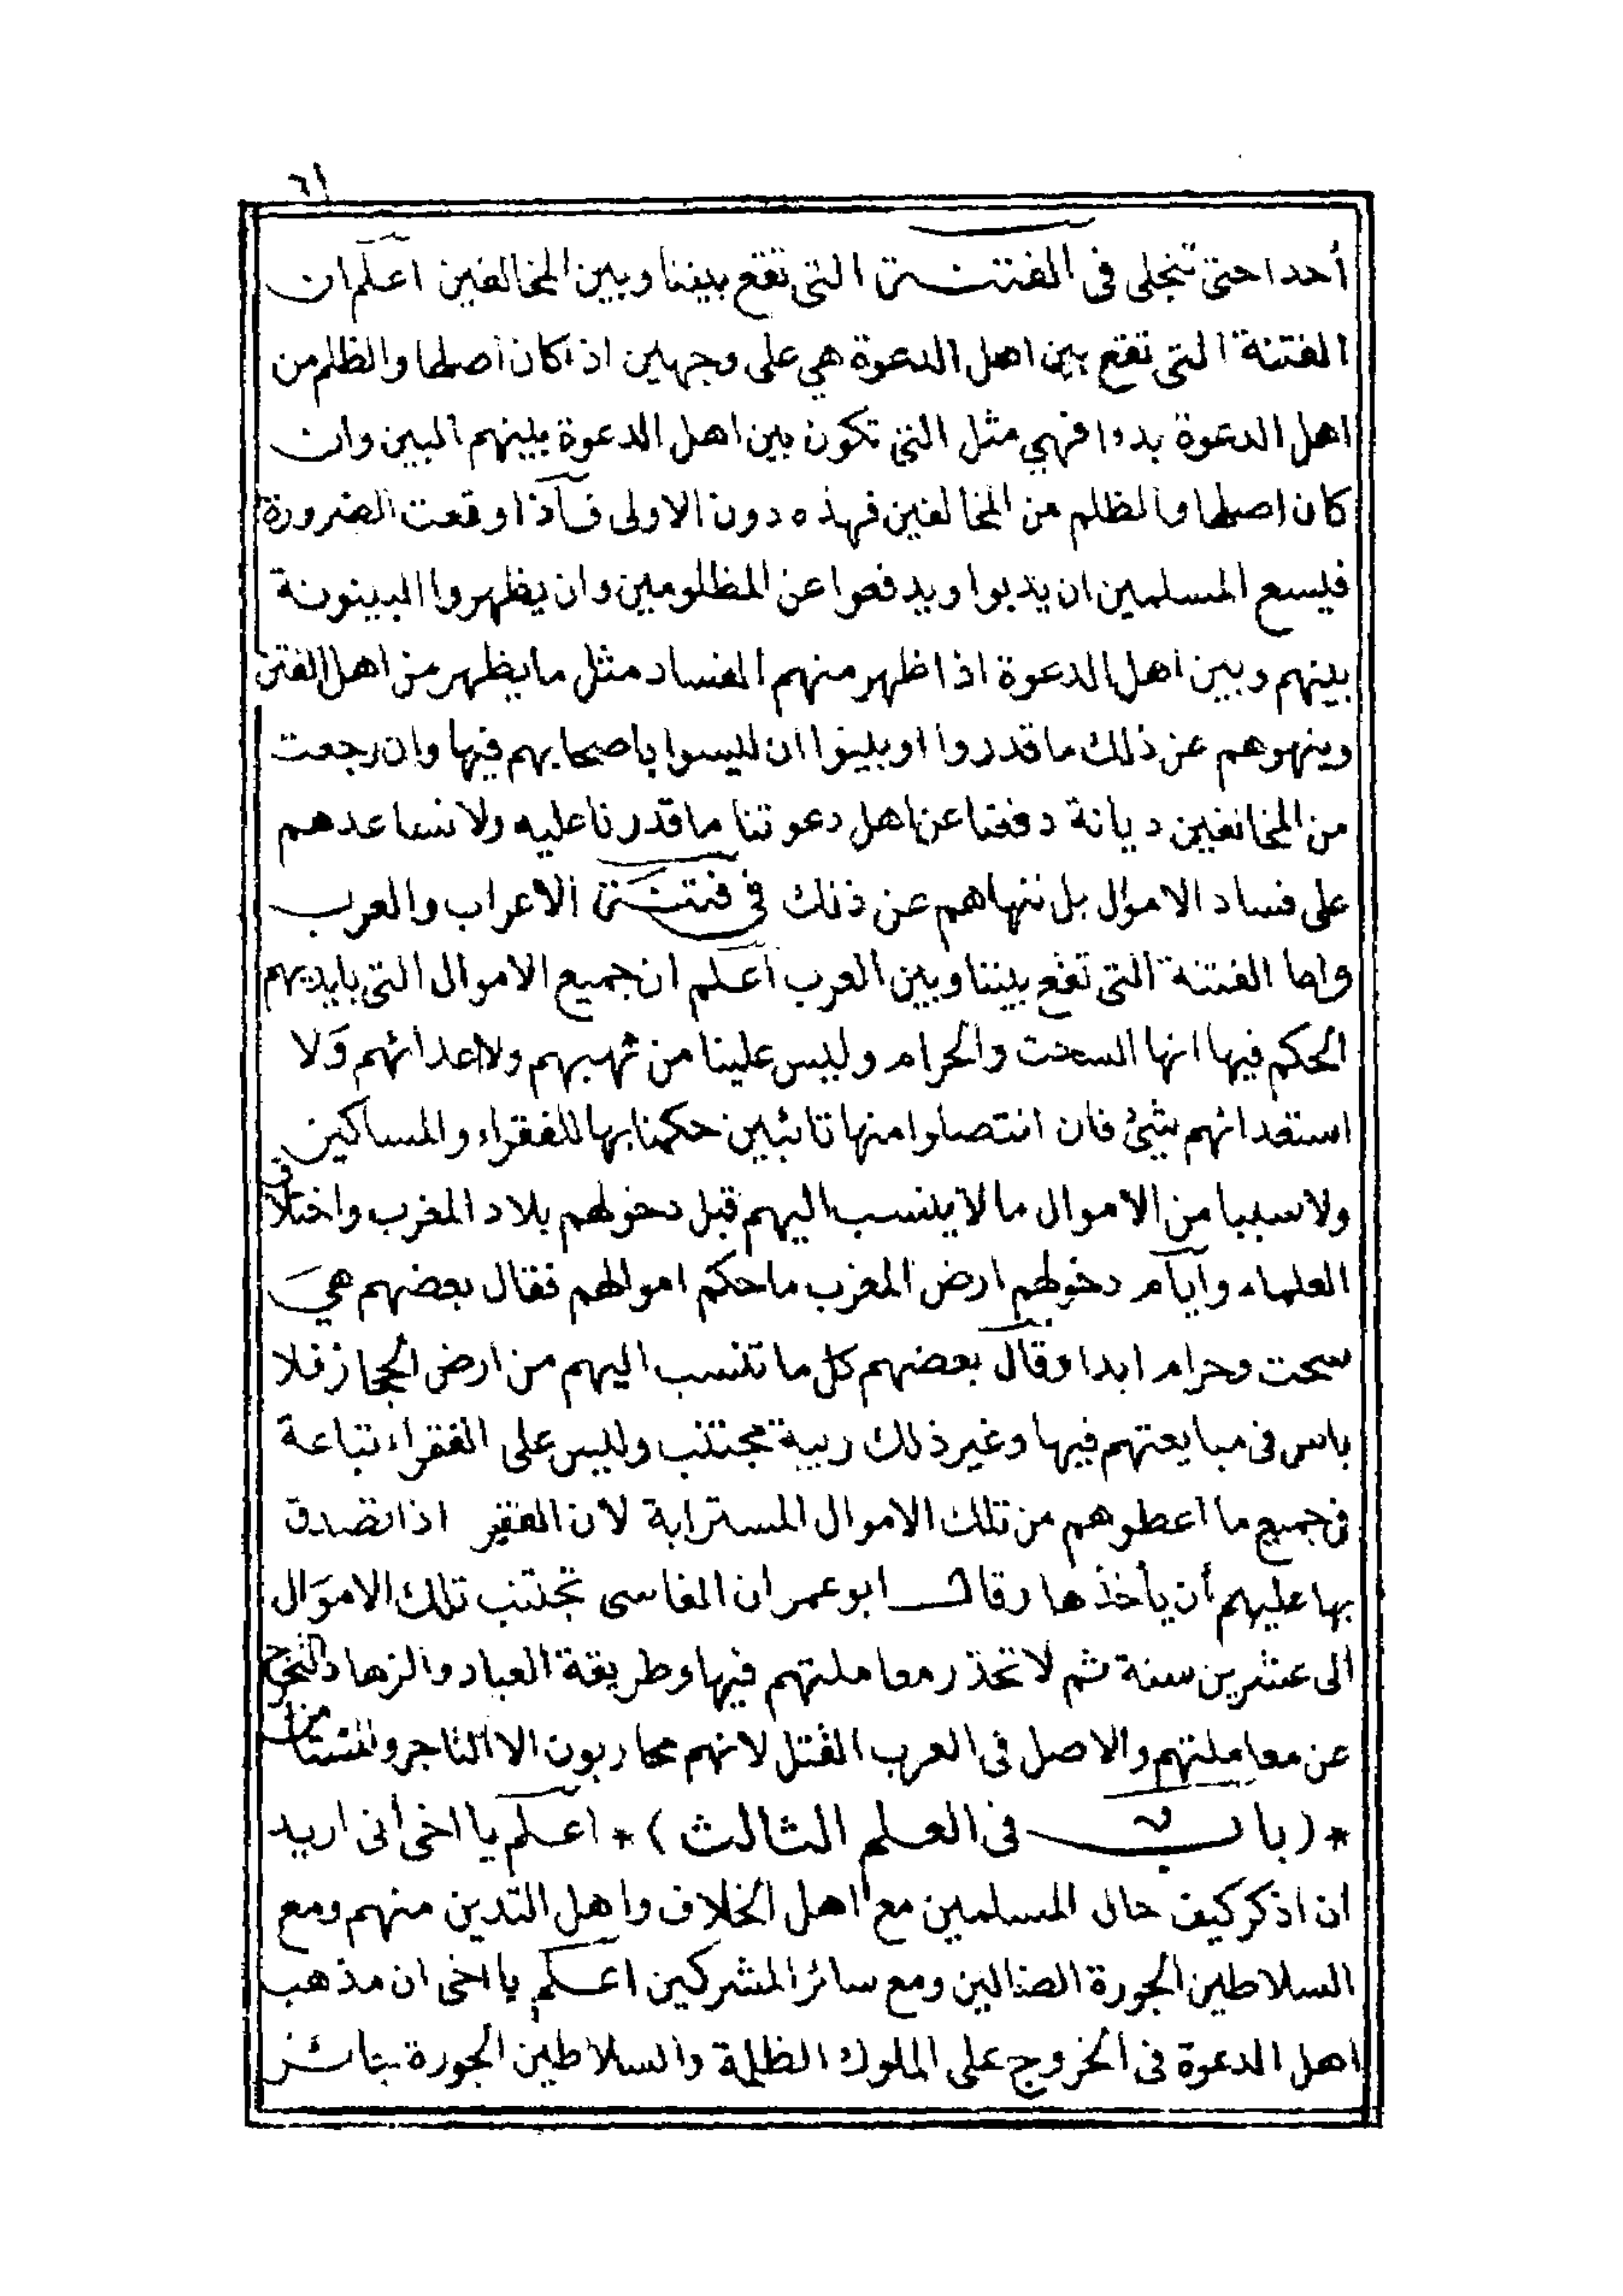 ٦١
أحدا حتى تنجلى فى الفتنة التى تقع بيننا وبين المخالفين اعلم ان
الفتنة التى تقع بين اهل الدعوة هي على وجهين اذا كان اصلها والظلم من
اهل الدعوة بدوا فهي مثل التى تكون بين اهل الدعوة بينهم البين وان
كان اصلها والظلم من المخالفين فهذه دون الاولى فاذا وقعت الضرورة
فليسع المسلمين ان يذبوا ويدفعوا عن المظلومين وان يظهروا البينونة
بينهم وبين اهل الدعوة اذا ظهر منهم الفساد مثل ما يظهر من اهل الفتن
وينهوهم عن ذلك ما قدروا او يبينوا ان ليسوا باصحابهم فيها وان رجعت
من المخالفين ديانة دفعنا عن اهل دعوتنا ما قدرنا عليه ولا نساعدهم
على فساد الاموال بل ننهاهم عن ذلك فى فتنة الاعراب والعرب
واما الفتنة التى تقع بيننا وبين العرب اعلم ان جميع الاموال التى بايديهم
الحكم فيها انها السحت والحرام وليس علينا من نهبهم ولا اعدائهم ولا
استعدائهم شئ فان انتصلوا منها تائبين حكمنا بها للفقراء والمساكين
ولا سيما من الاموال ما لا ينسب اليهم قبل دخولهم بلاد المغرب واختلاف
العلماء وايام دخولهم ارض المغرب ما حكم اموالهم فقال بعضهم هي
سحت وحرام ابدا وقال بعضهم كل ما تنسب اليهم من ارض الحجاز فلا
باس فى مبايعتهم فيها وغير ذلك ريبة مجتنب وليس على الفقراء تباعة
فى جميع ما اعطوهم من تلك الاموال المسترابة لأن الفقير اذا تصدق
بها عليهم أن يأخذها وقال ابو عمران الفاسى تجتنب تلك الاموال
الى عشرين سنة ثم لا تحذر معاملتهم فيها وطريقة العباد والزهاد التحرج
عن معاملتهم والاصل فى العرب القتل لانهم محاربون الا التاجر والمستأمن
* (باب فى العلم الثالث) * اعلم يا اخى أنى اريد
ان اذكر كيف حال المسلمين مع اهل الخلاف واهل التدين منهم ومع
السلاطين الجورة الضالين ومع سائر المشركين اعلم يا اخى ان مذهب
اهل الدعوة فى الخروج على الملوك الظلمة والسلاطين الجورة جائز